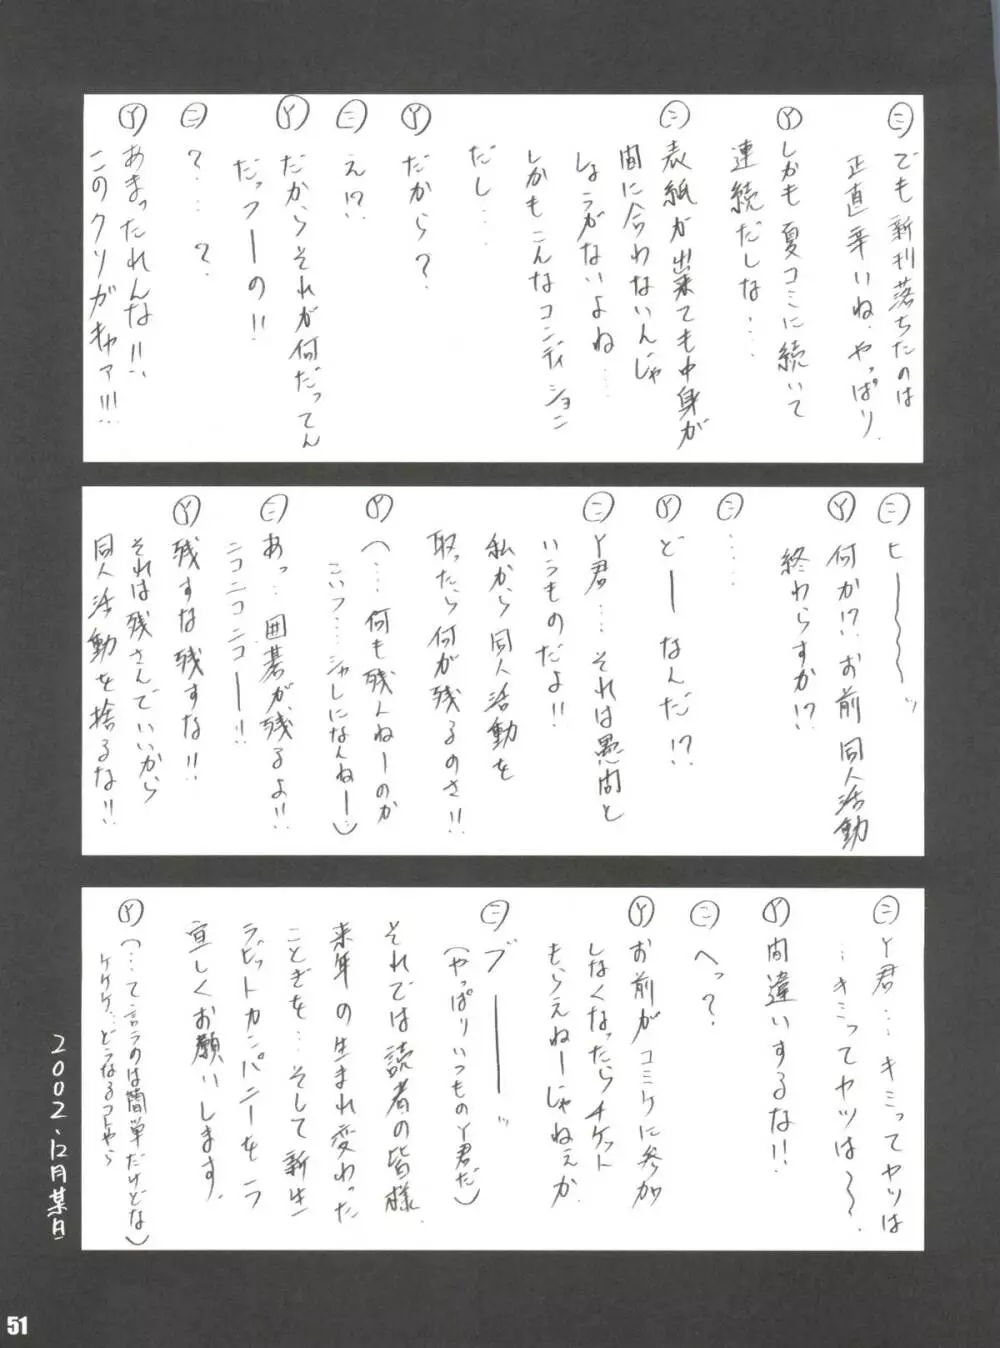 ㊁でも新刊落ちたのは
正直辛いね、やっぱり.
Ⓨしかも夏コミに続いて
連続だしな…
㊁表紙が出来ても中身が
間に合わないんじゃ
しょうがないよね……
しかもこんなコンディション
だし…
Ⓨだから?
㊁え!?
Ⓨだからそれが何だってん
だっつーの!!
㊁?…?
Ⓨあまったれんな!!
このクソガキャァ!!!
㊁ヒ〜〜〜ッ
Ⓨ何か!?お前同人活動
終わらすか!?
㊁……
Ⓨどーなんだ!?
㊁Y君…それは愚問と
いうものだよ!!
私から同人活動を
取ったら何が残るのさ!!
Ⓨ(…何も残んねーのか
こいつ…シャレになんねー)
㊁あっ…囲碁が残るよ!!
ニコニコニコー!!
Ⓨ残すな残すな!!
それは残さんでいいから
同人活動を捨るな!!
㊁Y君…キミってヤツは
…キミってヤツは〜〜.
Ⓨ間違いするな!!
㊁へっ?
Ⓨお前がコミケに参加
しなくなったらチケット
もらえねーじゃねぇか
㊁ブ――ッ
(やっぱりいつものY君だ)
それでは読者の皆様.
来年の生まれ変わった
ことぎを…そして新生
ラビットカンパニーをヨ
宜しくお願いします.
Ⓨ(…て言うのは簡単だけどな)
ケケケ…どうなるコトやら
2002、12月某日
51